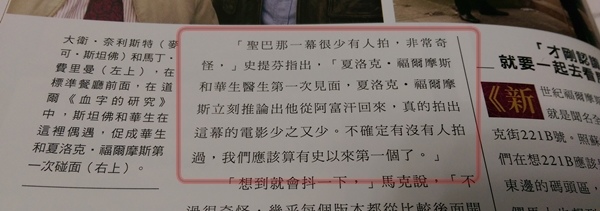 大衛・奈利斯特(麥
可・斯坦佛)和馬丁・
費里曼(左上),在
標準餐廳前面,在道
爾《血字的研究》
中,斯坦佛和華生在
這裡偶遇,促成華生
和夏洛克・福爾摩斯
第一次碰面(右上)。
「聖巴那一幕很少有人拍,非常奇
怪,」史提芬指出,「夏洛克・福爾摩斯
和華生醫生第一次見面,夏洛克・福爾摩斯
立刻推論出他從阿富汗回來,真的拍出
這幕的電影少之又少。不確定有沒有人拍
過,我們應該算有史以來第一個了。」
「想到就會抖一下,」馬克說,「不
過很奇怪,幾乎每個版本都從比較後面開
「才剛認
就要一起去看
《新
世紀福爾摩
就是聞名全
克街221B號。照蘇
們在想221B應該
東邊的碼頭區,